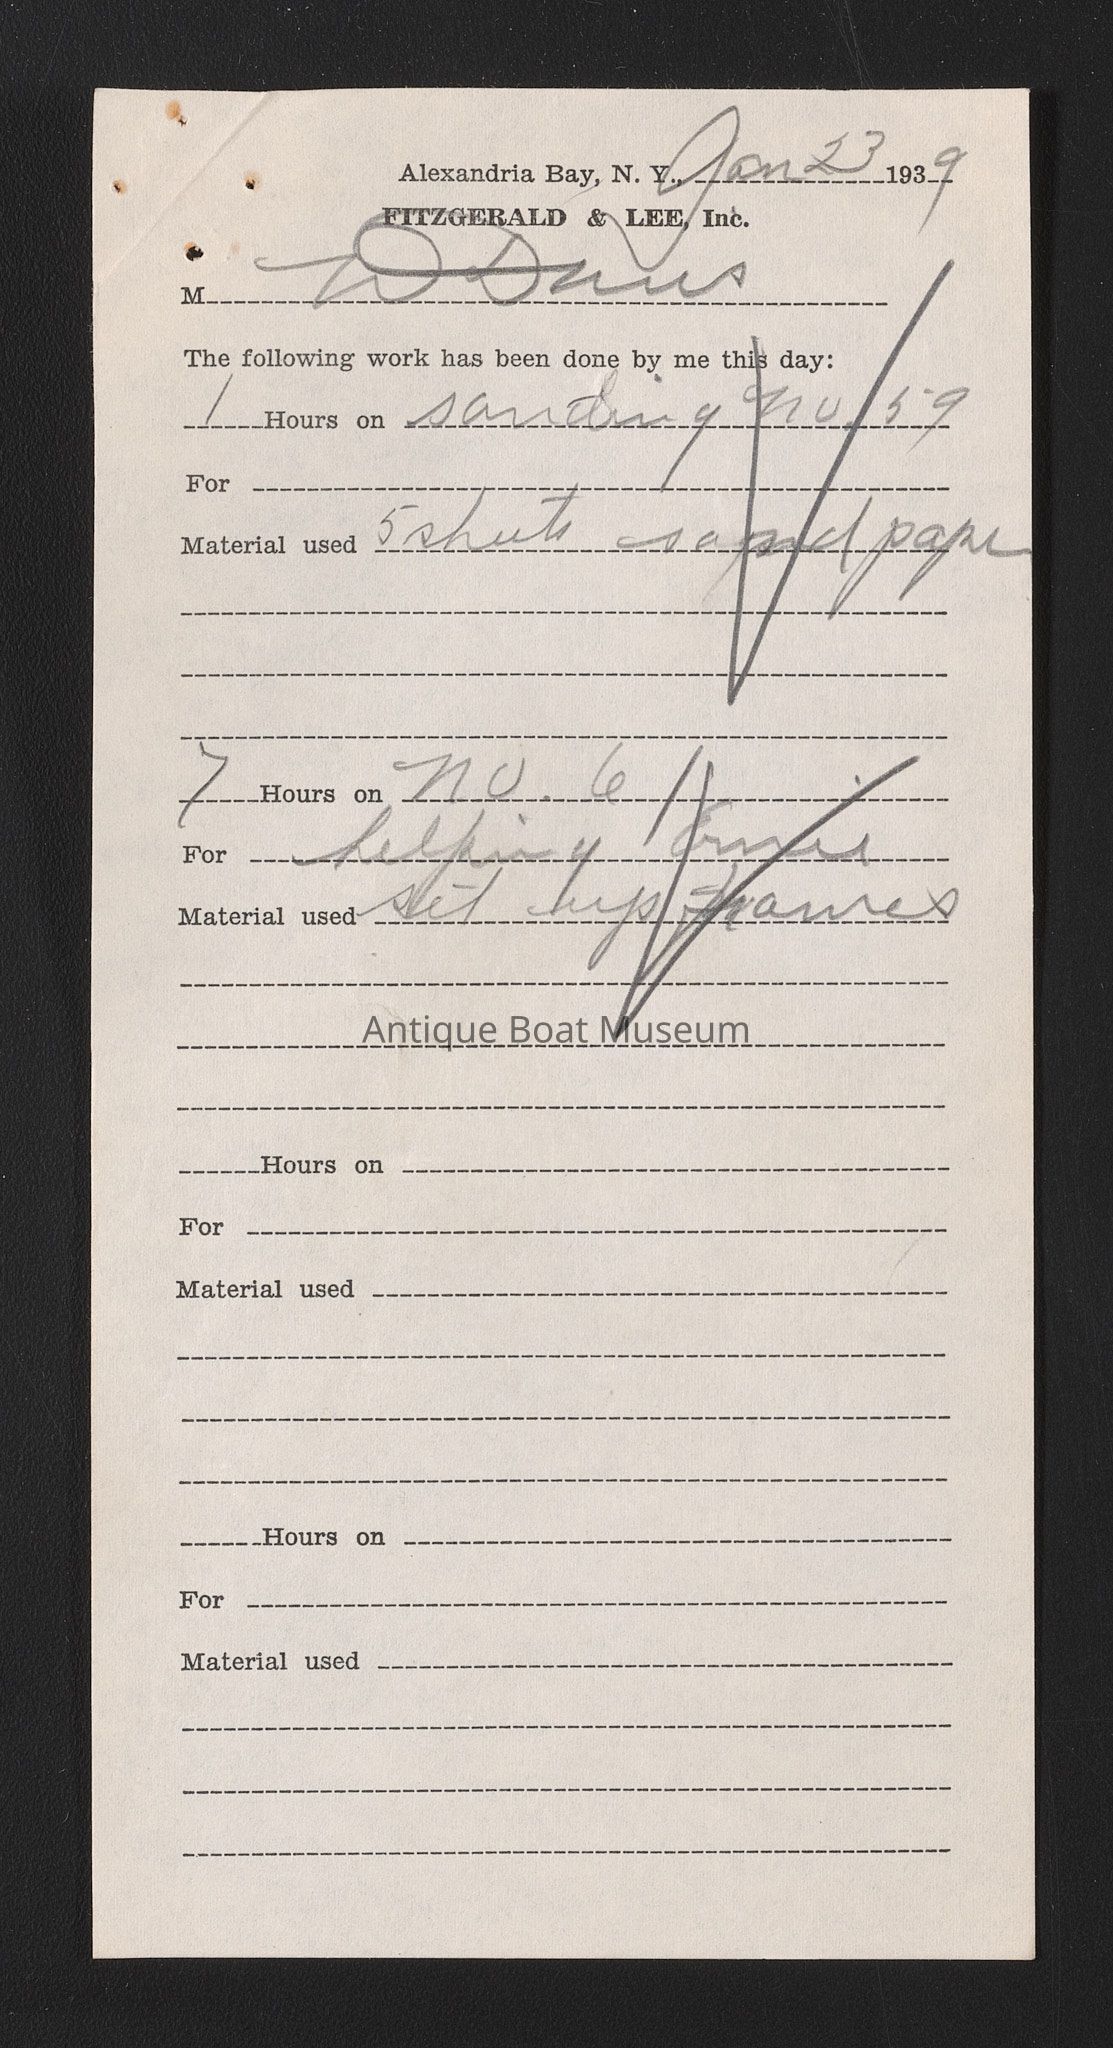 Alexandria Bay, N. Y., Jan 23 1939
FITZGERALD & LEE, Inc.
M W Davis
The following work has been done by me this day:
1 Hours on sanding No. 59
For
Material used 5 sheets sand paper
7 Hours on No. 61
For helping Ernie
Material used set up frames
Antique Boat Museum
Hours on
For
Material used
Hours on
For
Material used